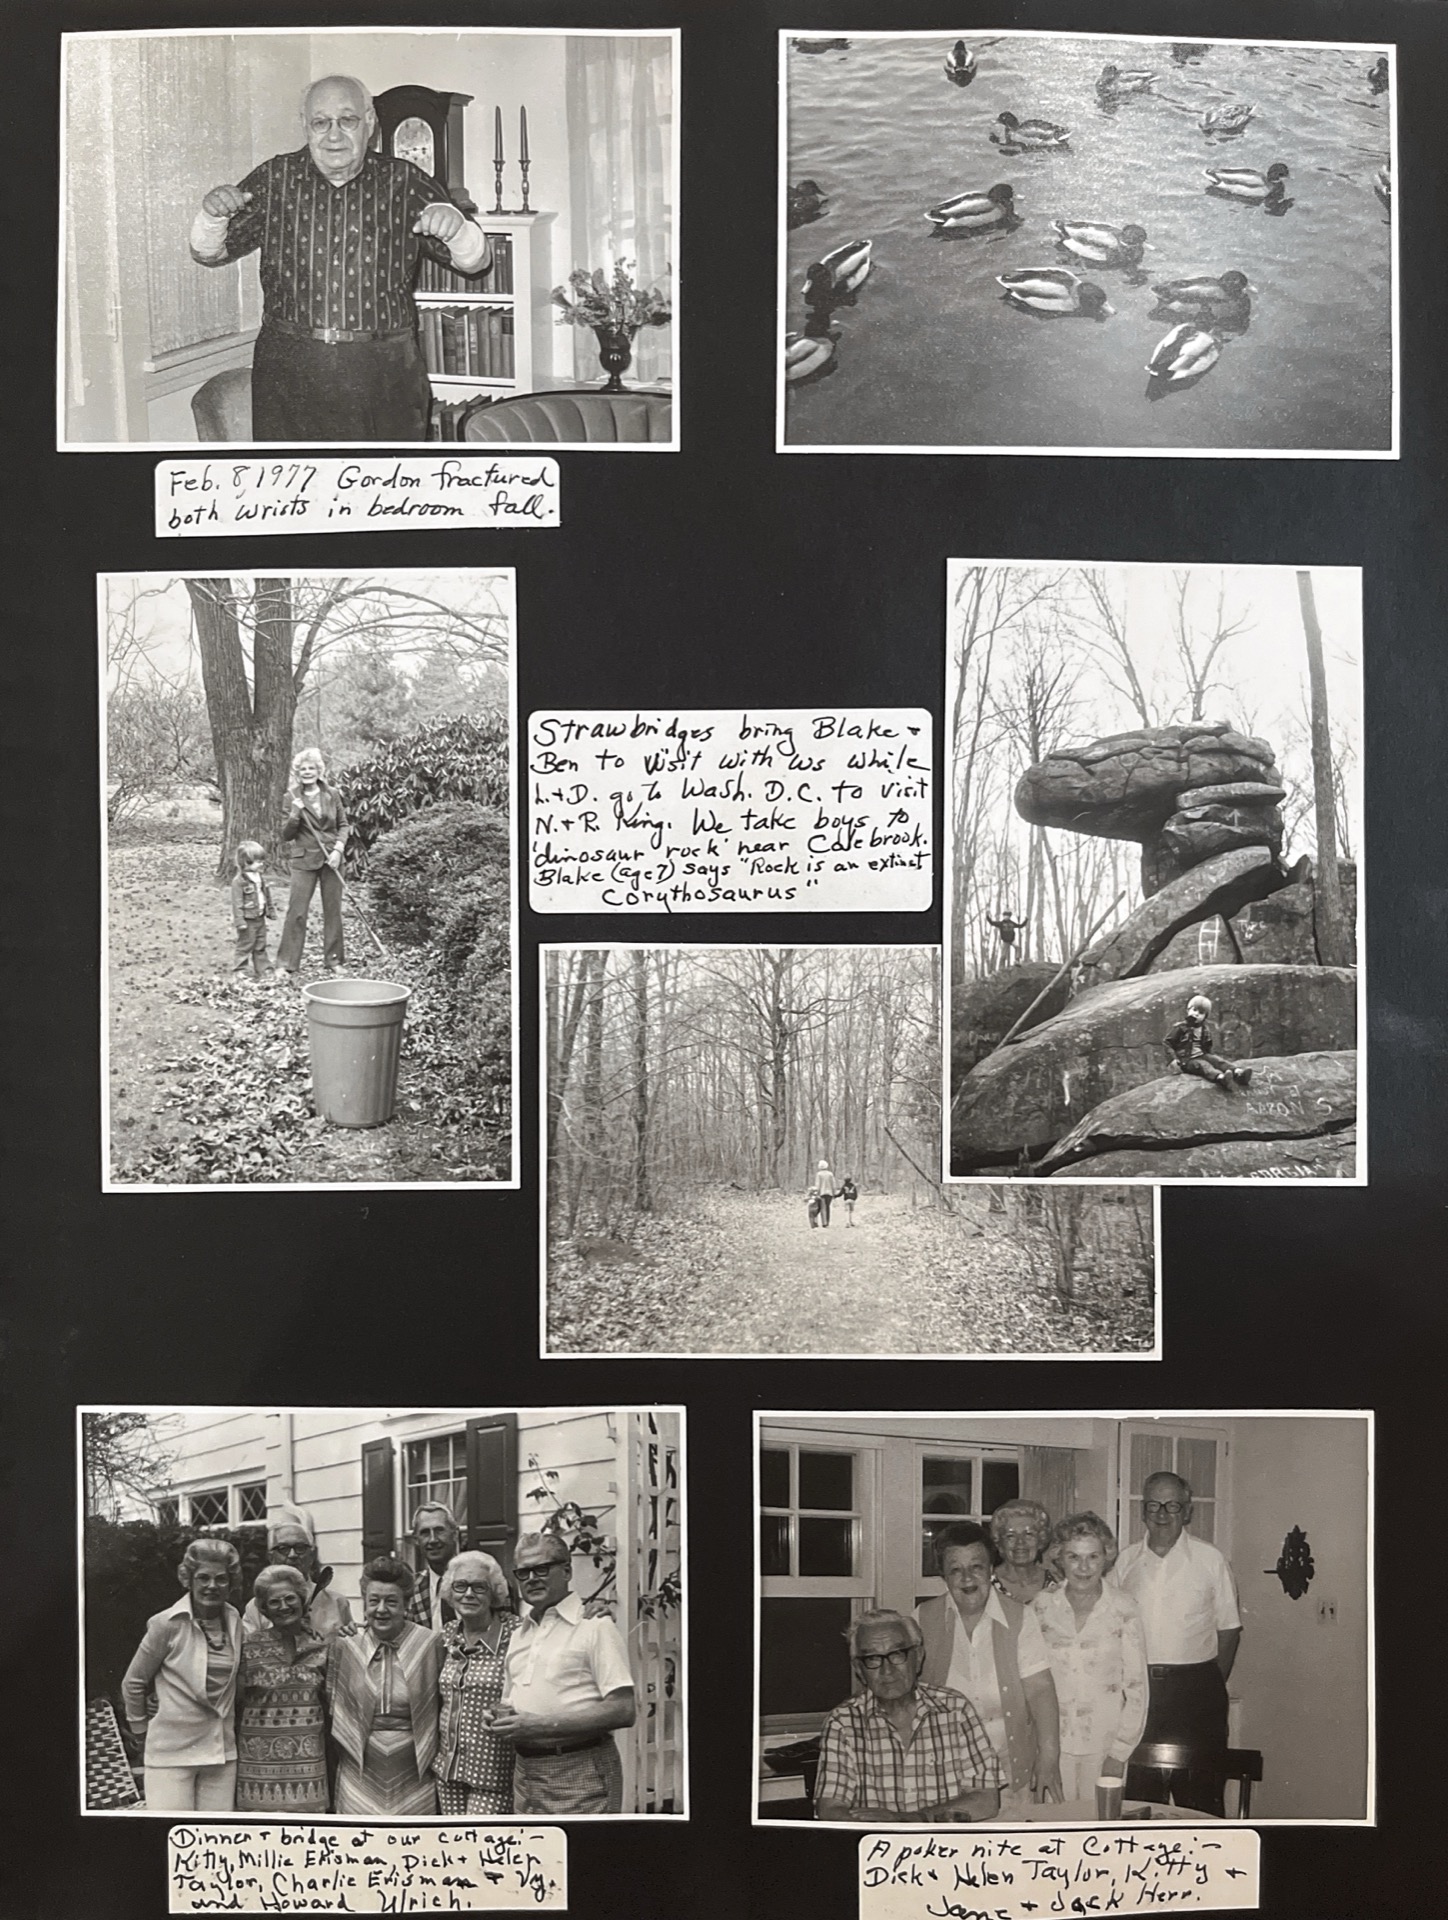 Feb. 8, 1977 Gordon fractured
both wrists in bedroom fall.
Strawbridges bring Blake +
Ben to visit with us while
L. + D. go to Wash. D.C. to visit
N. + R. King. We take boys to
'dinosaur rock' near Colebrook.
Blake (age 7) says "Rock is an extinct
Corythosaurus"
AARON S
Dinner + bridge at our cottage:-
Kitty, Millie Erisman, Dick + Helen
Taylor, Charlie Erisman + Vy.
and Howard Ulrich.
A poker nite at Cottage:-
Dick + Helen Taylor, Kitty +
Jane + Jack Herr.